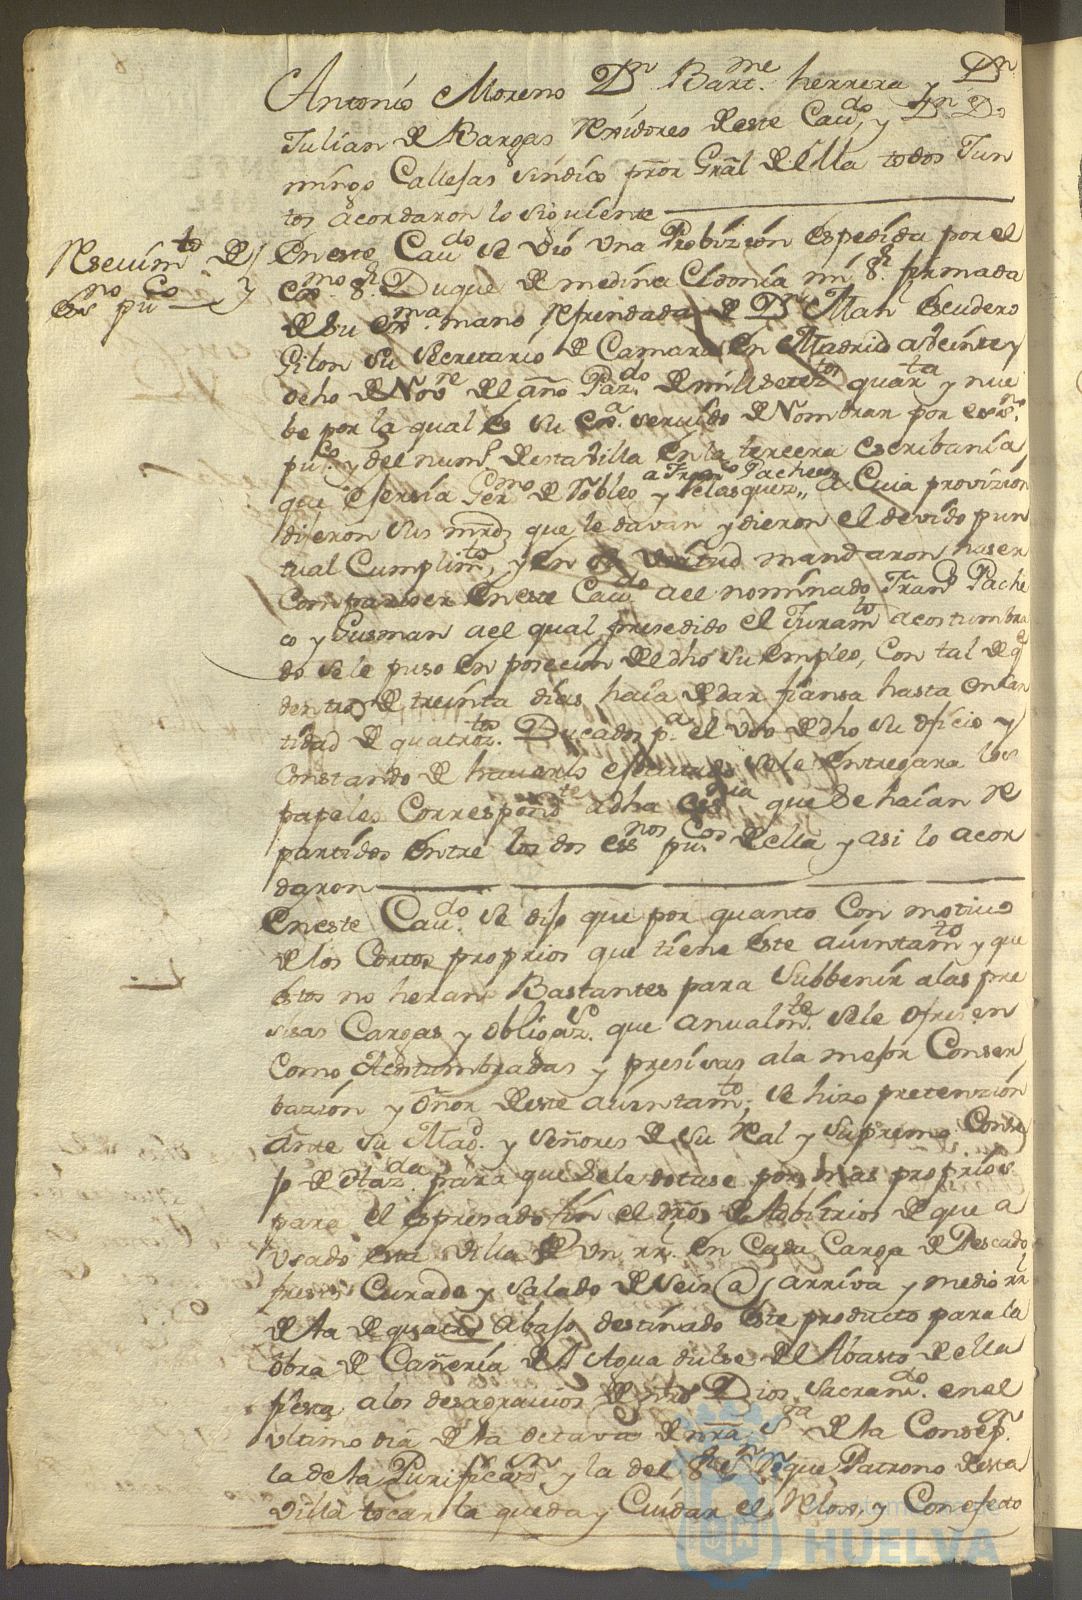 Antonio Moreno Dn Bartme. herrera y Dn
Julian de Bargas Rexidores deste Cavdo, y Dn Do
mingo Callejas sindico pror Gral de ella todos Jun
tos acordaron lo siguiente
Resevimto de
esno puco
En este Cavdo se vió una Probizion espedida por el
exmo Sr. Duque de medina Cidonia mi Sr. firmada
de su exma. mano refrendada de Dn Man Escudero
Gilon su Secretario de Camara en Madrid a veinte y
ocho de Nove del año Pazdo de mill setezos quarta y nue
be por la qual es su exa. servido de Nombrar por essno.
puco. y del numo. desta villa en la tercera escribania
que exersia Germo de Robles
a Franco Pacheco
y Velasquez,, a Cuia provizion
dijeron sus mrds que le davan y dieron el devido pun
tual Cumplimto, y en su virtud mandaron haser
compareser en este Cavdo a el nominado Frano Pache
co y Gusman a el qual presedido el Juramto acostumbra
do se le puso en posecion de dho su empleo, con tal de q
dentro de treinta dias haia de dar fiansa hasta en can
tidad de quatrozto. Ducados pa. el uso de dho su oficio y
constando de haverlo efectuado se le entregara los
papeles Correspondte a dha essnia que se haian re
partidos entre los dos essnos pucos de ella y asi lo acor
daron
En este Cavdo. se dijo que por quanto con motivo
de los Cortos proprios que tiene este aiuintamto y que
estos no heran Bastantes para Subbenir a las pre
sisas Cargas y obligazs. que anualmte. se le ofresen
como Acostumbradas y presisas a la mejor Conser
bazion y onor deste aiuintamto; se hizo pretenzion
ante su Magd. y señores de su Real y Supremo Conse
jo de Hazda. para que se le dotase por mas proprios
para el espresado fin el dro de Adbitrios de que a
usado esta villa de un rl. en Cada Carga de Pescado
fresco Curado y salado de seis @s arriva y medio rl
de la de quatro abajo destinado este producto para la
obra de Cañeria de el Agua dulse de el Abasto de ella
fiesta a los desagravios de ntro Dios Sacramdo. en el
ultimo dia de la octava de nra Sra de la Consepn.
la de la Purificazn y la del Sr Sn Roque Patrono desta
villa tocar la queda y Cuidar el Relox, y con efecto
HUELVA